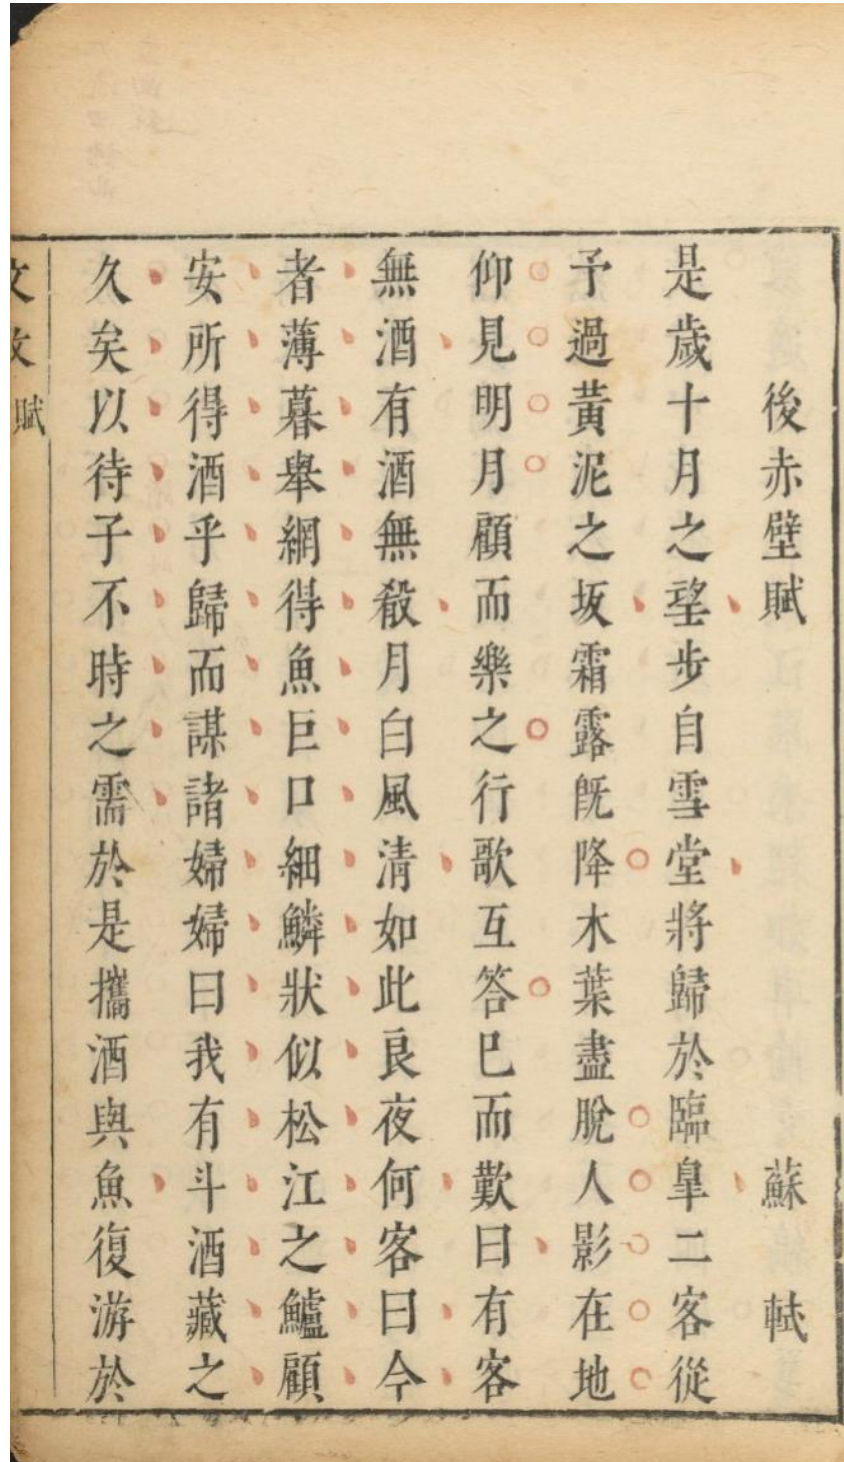 後赤壁賦 蘇軾
是歲十月之望步自雪堂將歸於臨皐二客從
予過黃泥之坂霜露旣降木葉盡脫人影在地
仰見明月顧而樂之行歌互答已而歎曰有客
無酒有酒無殽月白風清如此良夜何客曰今
者薄暮舉網得魚巨口細鱗狀似松江之鱸顧
安所得酒乎歸而謀諸婦婦曰我有斗酒藏之
久矣以待子不時之需於是攜酒與魚復游於
賦